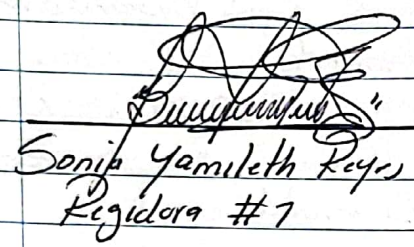 Sonia Yamileth Reyes
Regidora #7